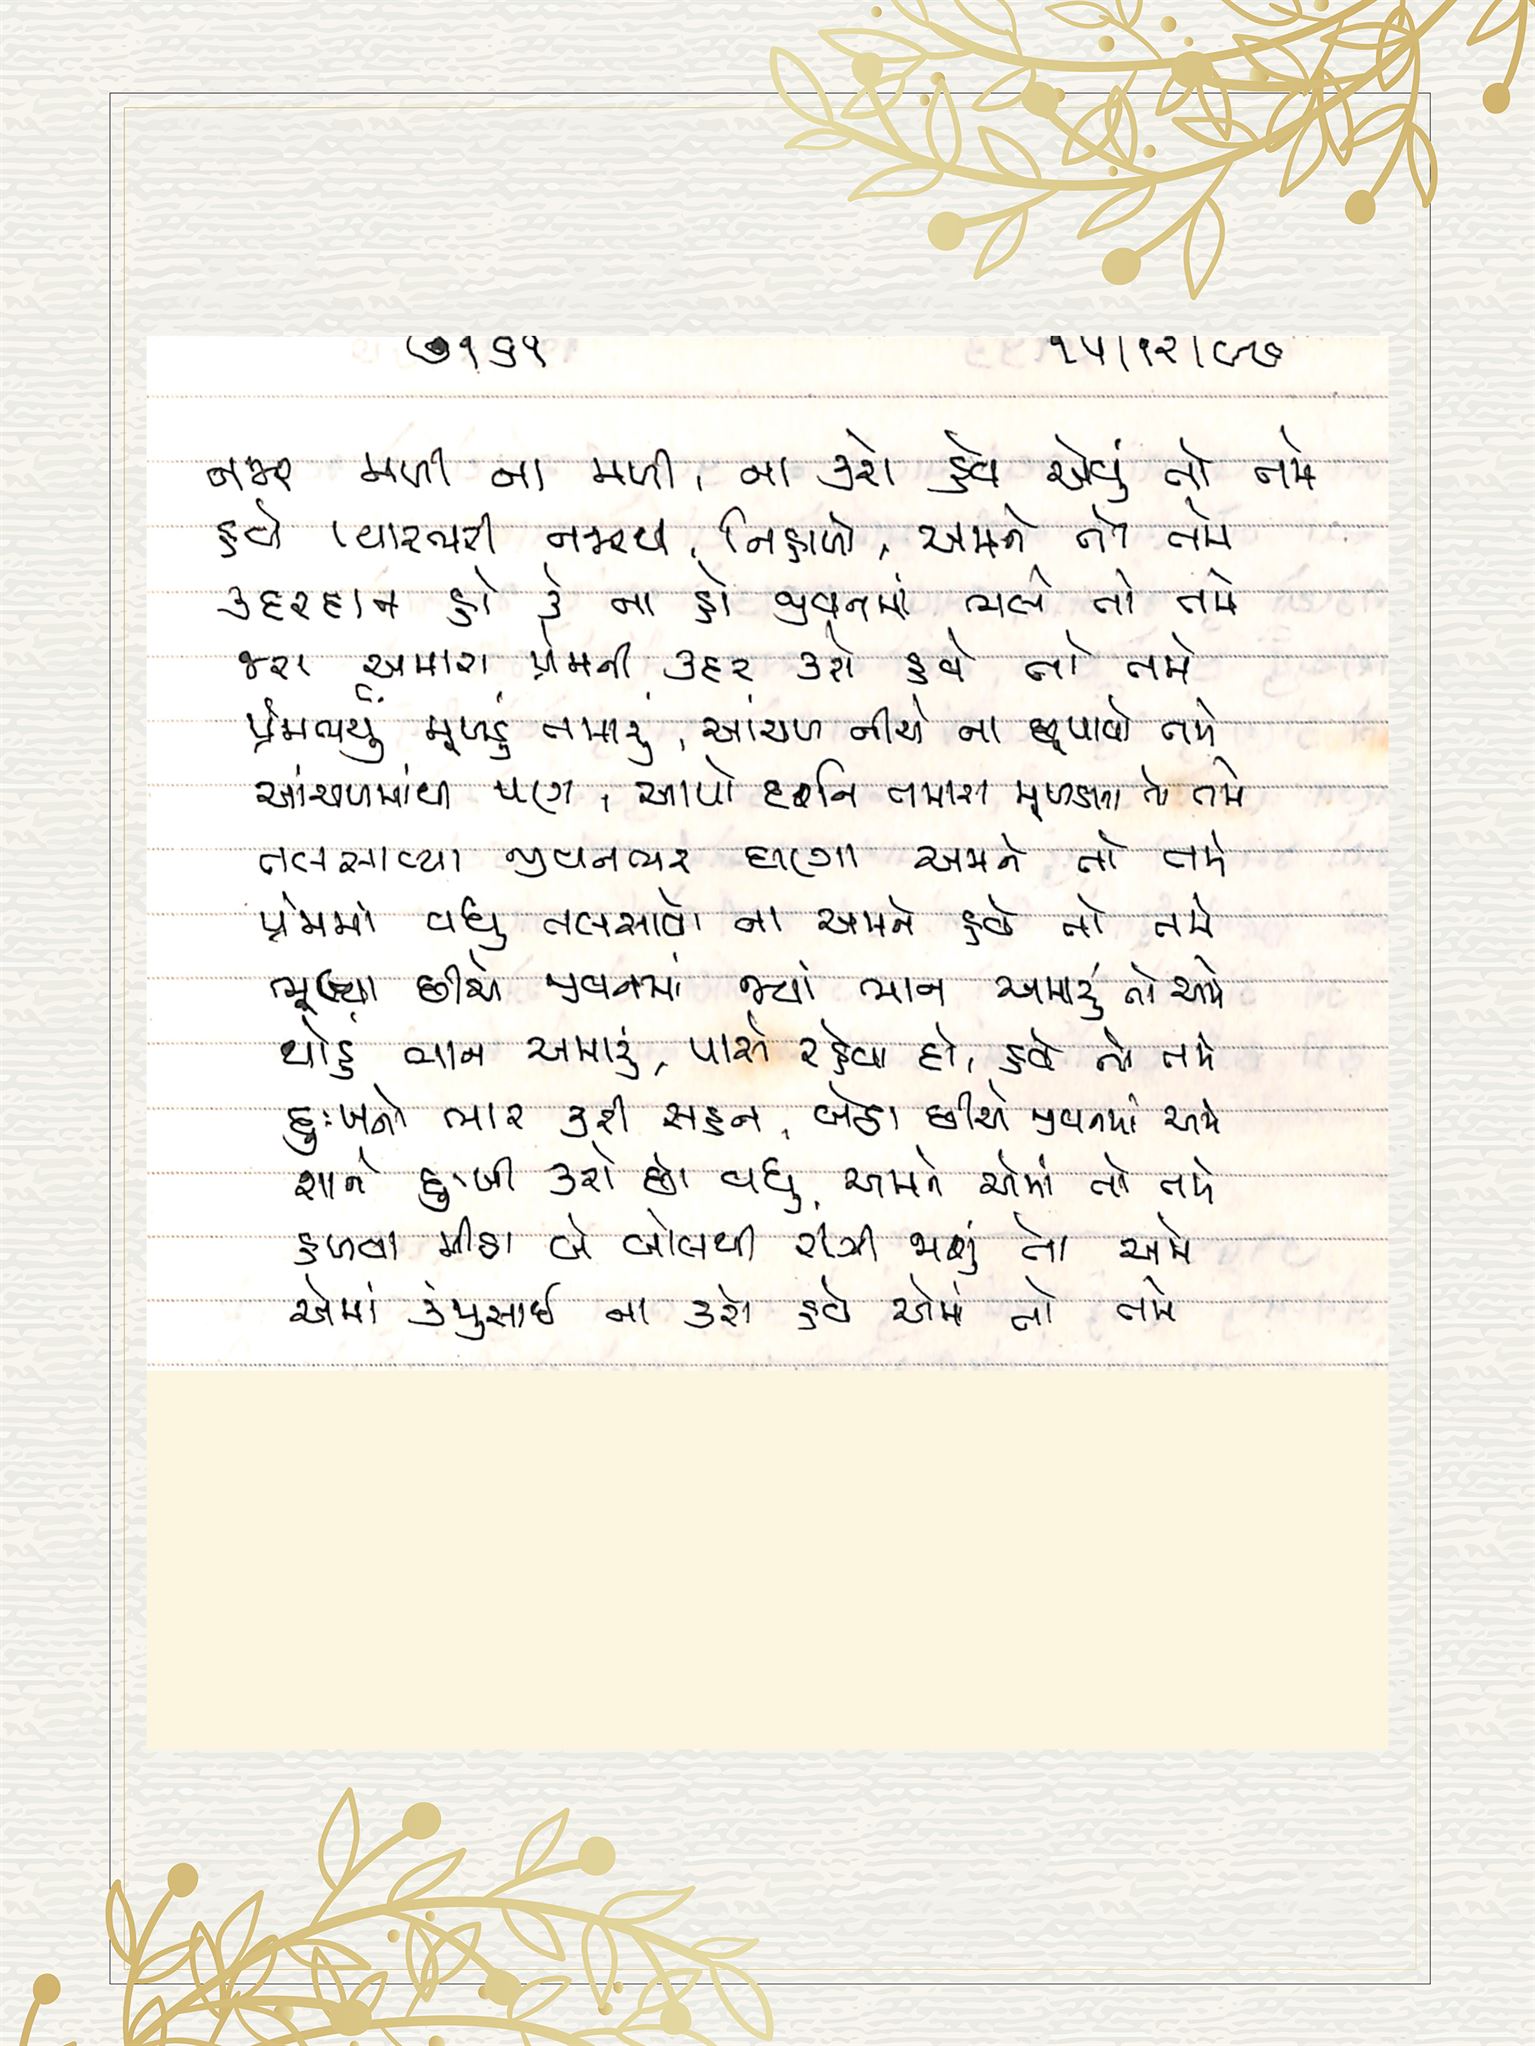 ૭૧૬૧ ૧૫/૧૨/૯૭
નજર મળી ના મળી, ના કરો હવે એવું તો તમે
હવે પ્યારભરી નજરથી, નિહાળો, અમને તો તમે
કદરદાન હો કે ના હો જીવનમાં ભલે તો તમે
જરા અમારા પ્રેમની કદર કરો હવે તો તમે
પ્રેમભર્યું મુખડું તમારું, આંચળ નીચે ના છુપાવો તમે
આંચળમાંથી પણ, આપો દર્શન તમારા મુખડાના તો તમે
તલસાવ્યા જીવનભર ઘણા અમને તો તમે
પ્રેમમાં વધુ તલસાવો ના અમને હવે તો તમે
ભૂલ્યા છીએ જીવનમાં જ્યાં ભાન અમારું તો અમે
થોડું ભાન અમારું, પાસે રહેવા દો, હવે તો તમે
દુઃખનો ભાર કરી સહન, બેઠા છીએ જીવનમાં અમે
શાને દુઃખી કરો છો વધુ, અમને એમાં તો તમે
હળવા મીઠા બે બોલથી રીઝી જાશું તો અમે
એમાં કંજુસાઈ ના કરો હવે એમાં તો તમે